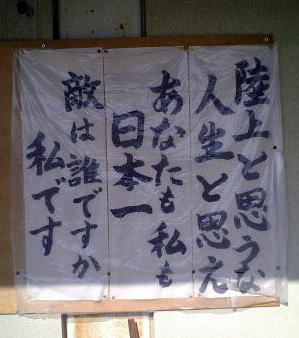 陸上と思うな
人生と思え
あなたも私も
日本一
敵は誰ですか
私です